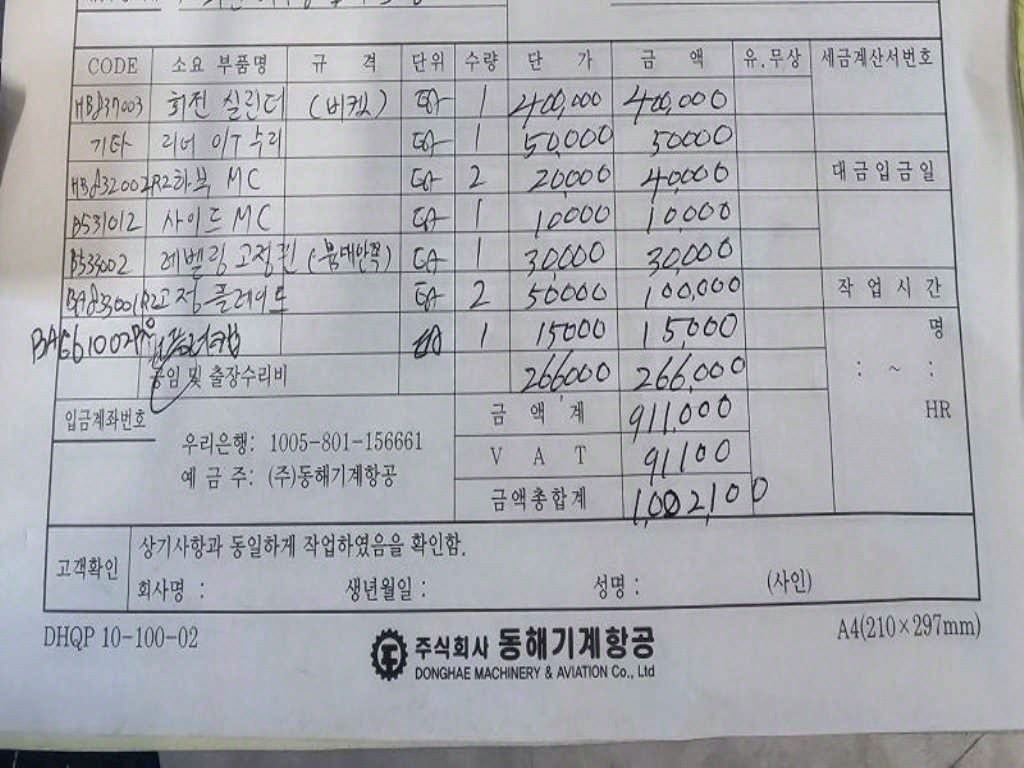 CODE 소요 부품명 규 격 단위 수량 단 가 금 액 유.무상 세금계산서번호
HBJ37003 회전 실린더 (버켓) EA 1 400,000 400,000
기타 리너 이T 수리 EA 1 50,000 50000
HBJ32002R2 하부 MC EA 2 20000 40,000 대금입금일
B531012 사이드 MC EA 1 10000 10,000
B533002 레벨링 고정핀 (붐대안쪽) EA 1 30,000 30,000
BAJ33001R2 고정 플레이트 EA 2 50000 100,000 작업시간
BAG61002 EA 1 15000 15,000 명
공임 및 출장수리비 266000 266,000 : ~ :
입금계좌번호 금 액 계 911,000 HR
우리은행: 1005-801-156661
V A T 91100
예 금 주: (주)동해기계항공
금액총합계 1,002,100
고객확인 상기사항과 동일하게 작업하였음을 확인함.
회사명 : 생년월일 : 성명 : (사인)
DHQP 10-100-02 A4(210×297mm)
주식회사 동해기계항공
DONGHAE MACHINERY & AVIATION Co., Ltd